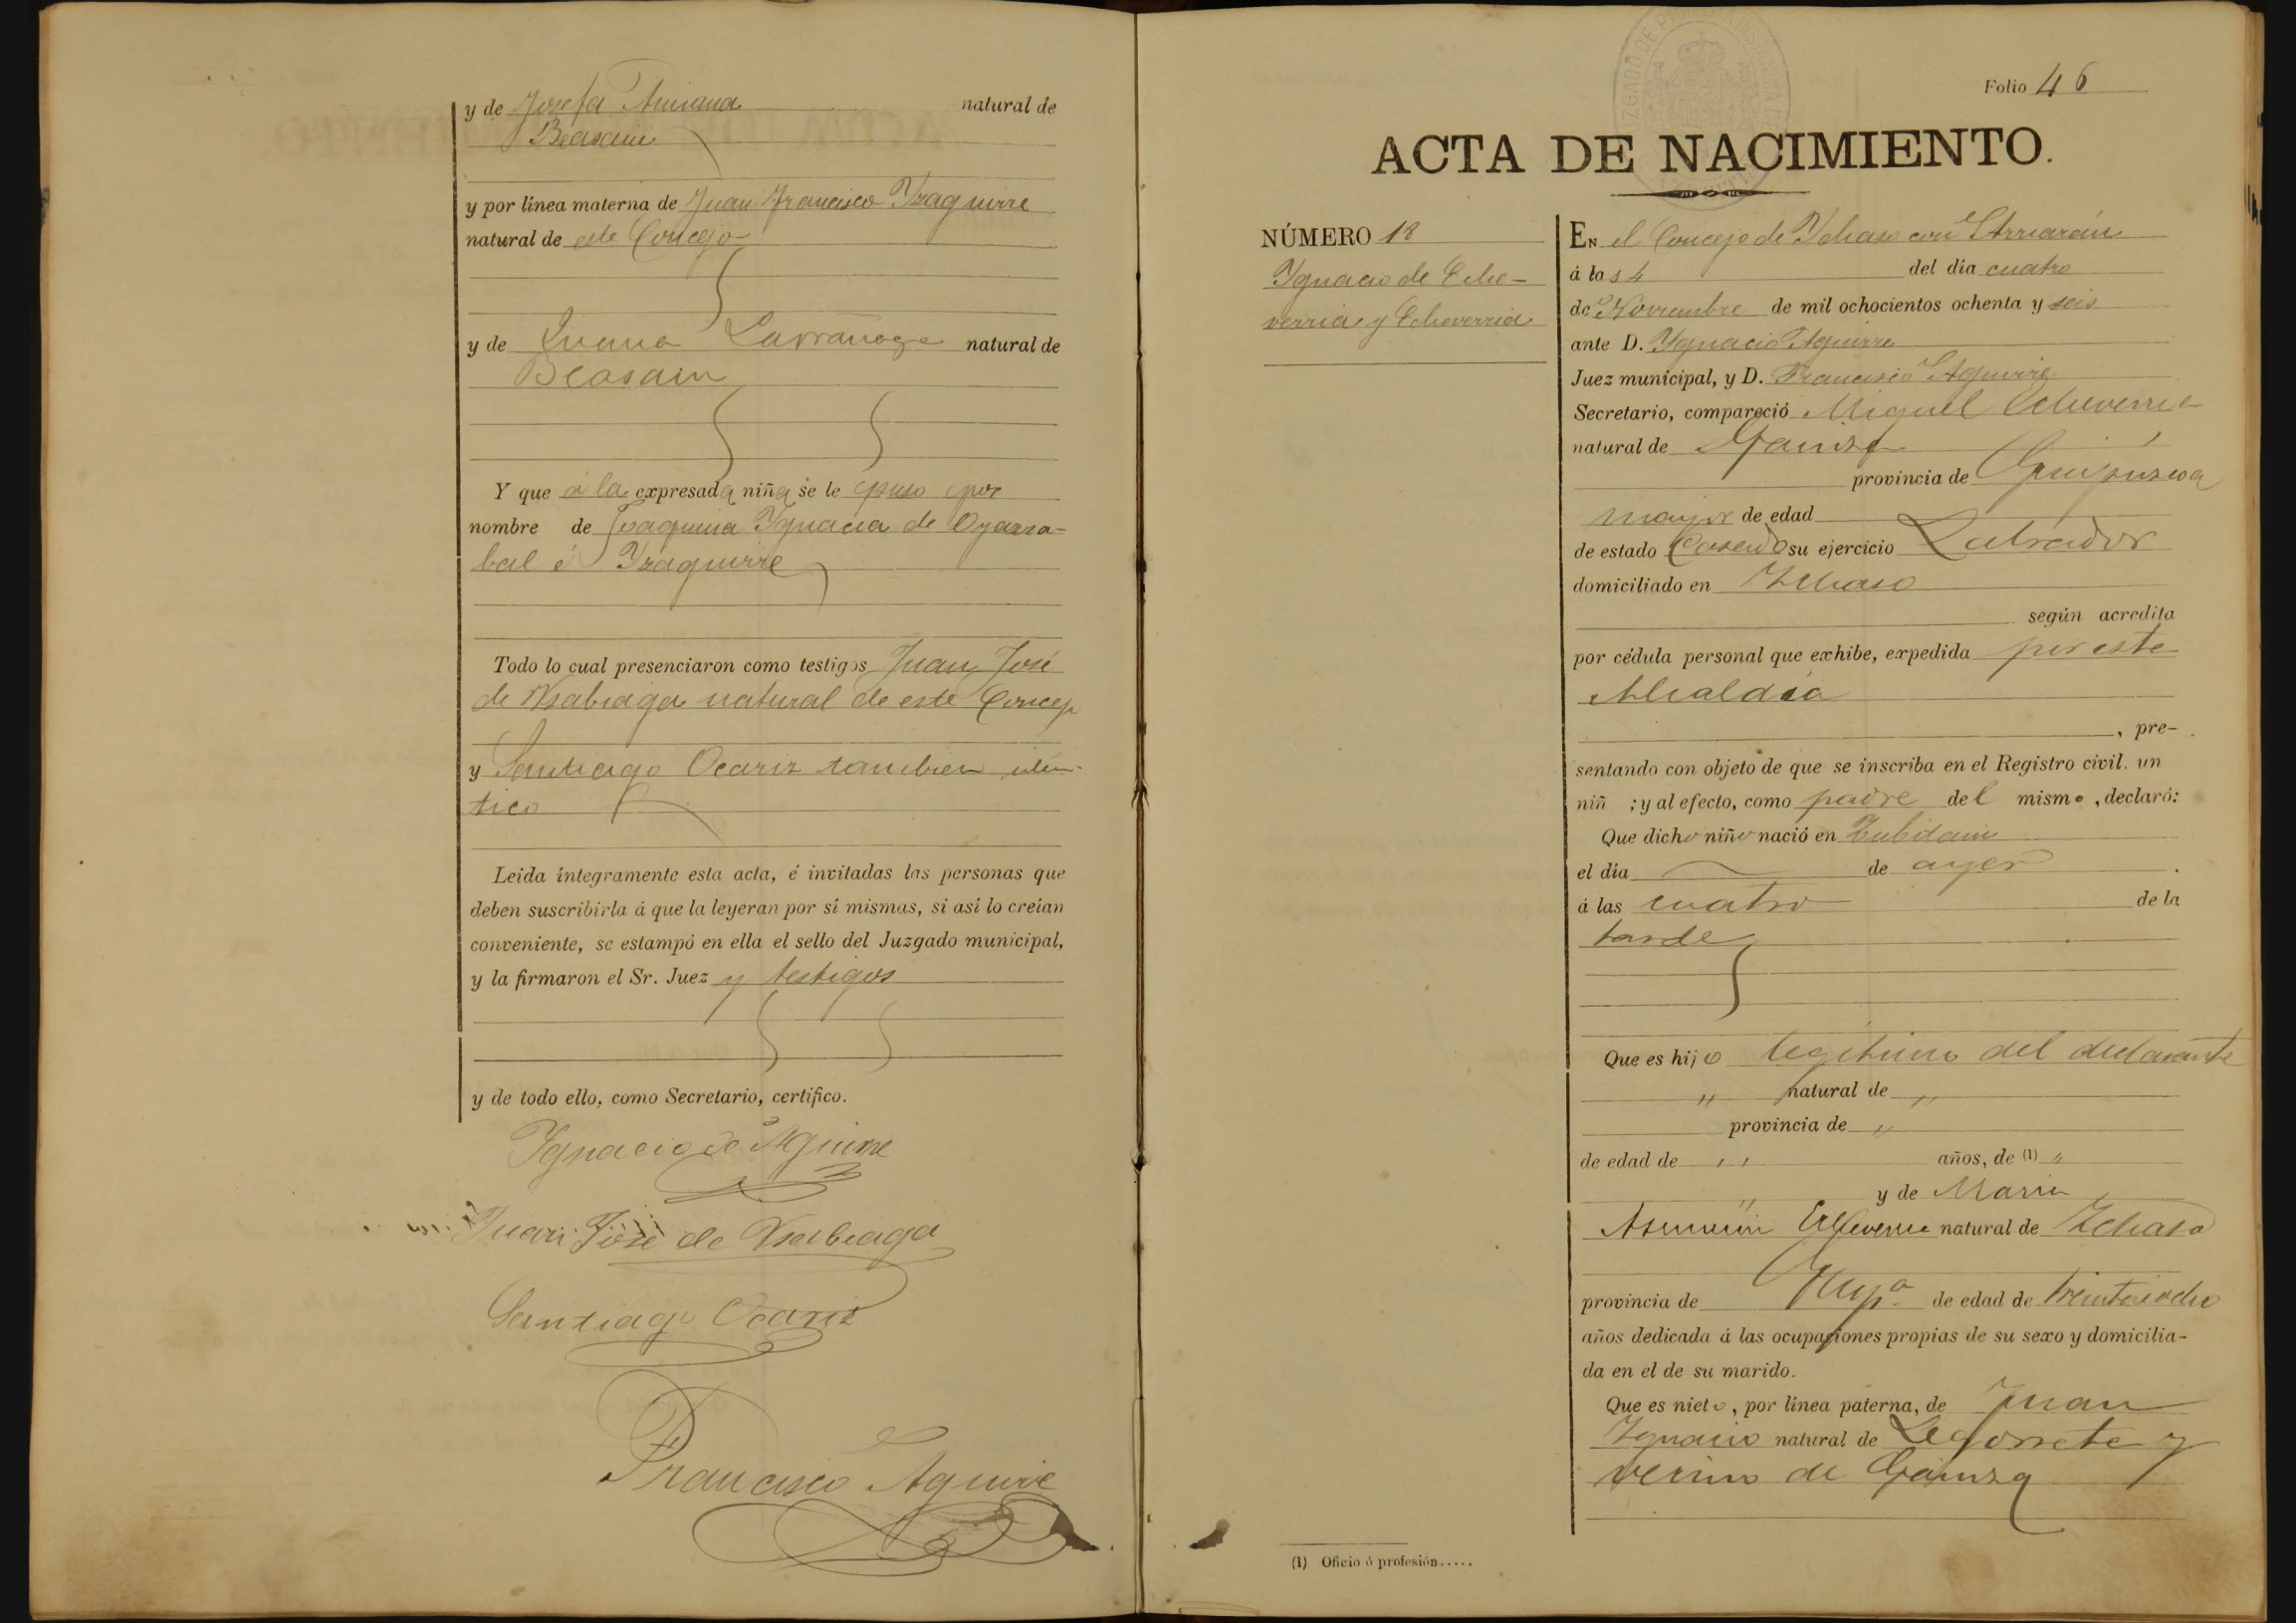 y de Josefa Amiana natural de
Beasain
y por línea materna de Juan Francisco Yzaguirre
natural de este Concejo
y de Juana Larrañaga natural de
Beasain
Y que á la expresada niña se le puso por
nombre de Joaquina Ygnacia de Oyarza-
bal é Yzaguirre
Todo lo cual presenciaron como testigos Juan José
de Usabiaga natural de este Concejo
y Santiago Ocariz tambien idén-
tico
Leida íntegramente esta acta, é invitadas las personas que
deben suscribirla á que la leyeran por sí mismas, si así lo creían
conveniente, se estampó en ella el sello del Juzgado municipal,
y la firmaron el Sr. Juez y testigos
y de todo ello, como Secretario, certifico.
Ygnacio de Aguirre
Juan José de Usabiaga
Santiago Ocariz
Francisco Aguirre
Folio 46
ACTA DE NACIMIENTO.
NÚMERO 18
Ygnacio de Eche-
verria y Echeverria
EN el Concejo de Ychaso con Arriarán
á las 4 del día cuatro
de Noviembre de mil ochocientos ochenta y seis
ante D. Ygnacio Aguirre
Juez municipal, y D. Francisco Aguirre
Secretario, compareció Miguel Echeverria
natural de Gainza
provincia de Guipúzcoa
mayor de edad
de estado Casado su ejercicio Labrador
domiciliado en Ychaso
según acredita
por cédula personal que exhibe, expedida por este
Alcaldia
, pre-
sentando con objeto de que se inscriba en el Registro civil. un
niñ ; y al efecto, como padre del mismo, declaró:
Que dicho niño nació en
el día de ayer
á las cuatro de la
tarde
Que es hijo legitimo del declarante
" natural de "
provincia de "
de edad de " años, de (1) "
" y de Maria
Asuncion Echeverria natural de Ychaso
provincia de Guipª de edad de treintaiocho
años dedicada á las ocupaciones propias de su sexo y domicilia-
da en el de su marido.
Que es nieto, por línea paterna, de Juan
Ygnacio natural de Legorreta y
vecino de Gainza
(1) Oficio ó profesión.....